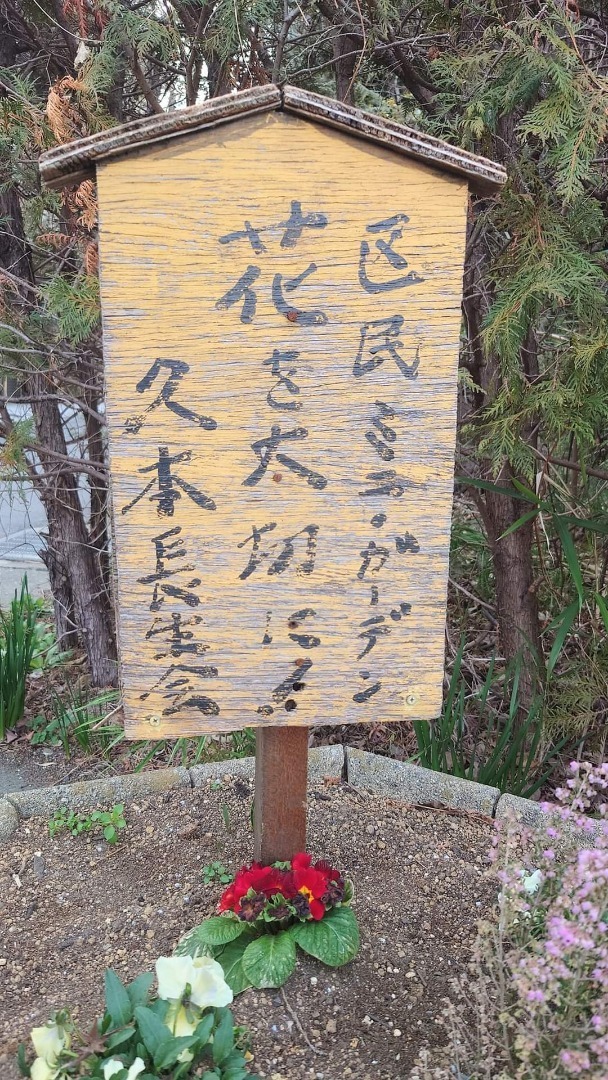 区民ミニ・ガーデン
花を大切に!
久本長生会